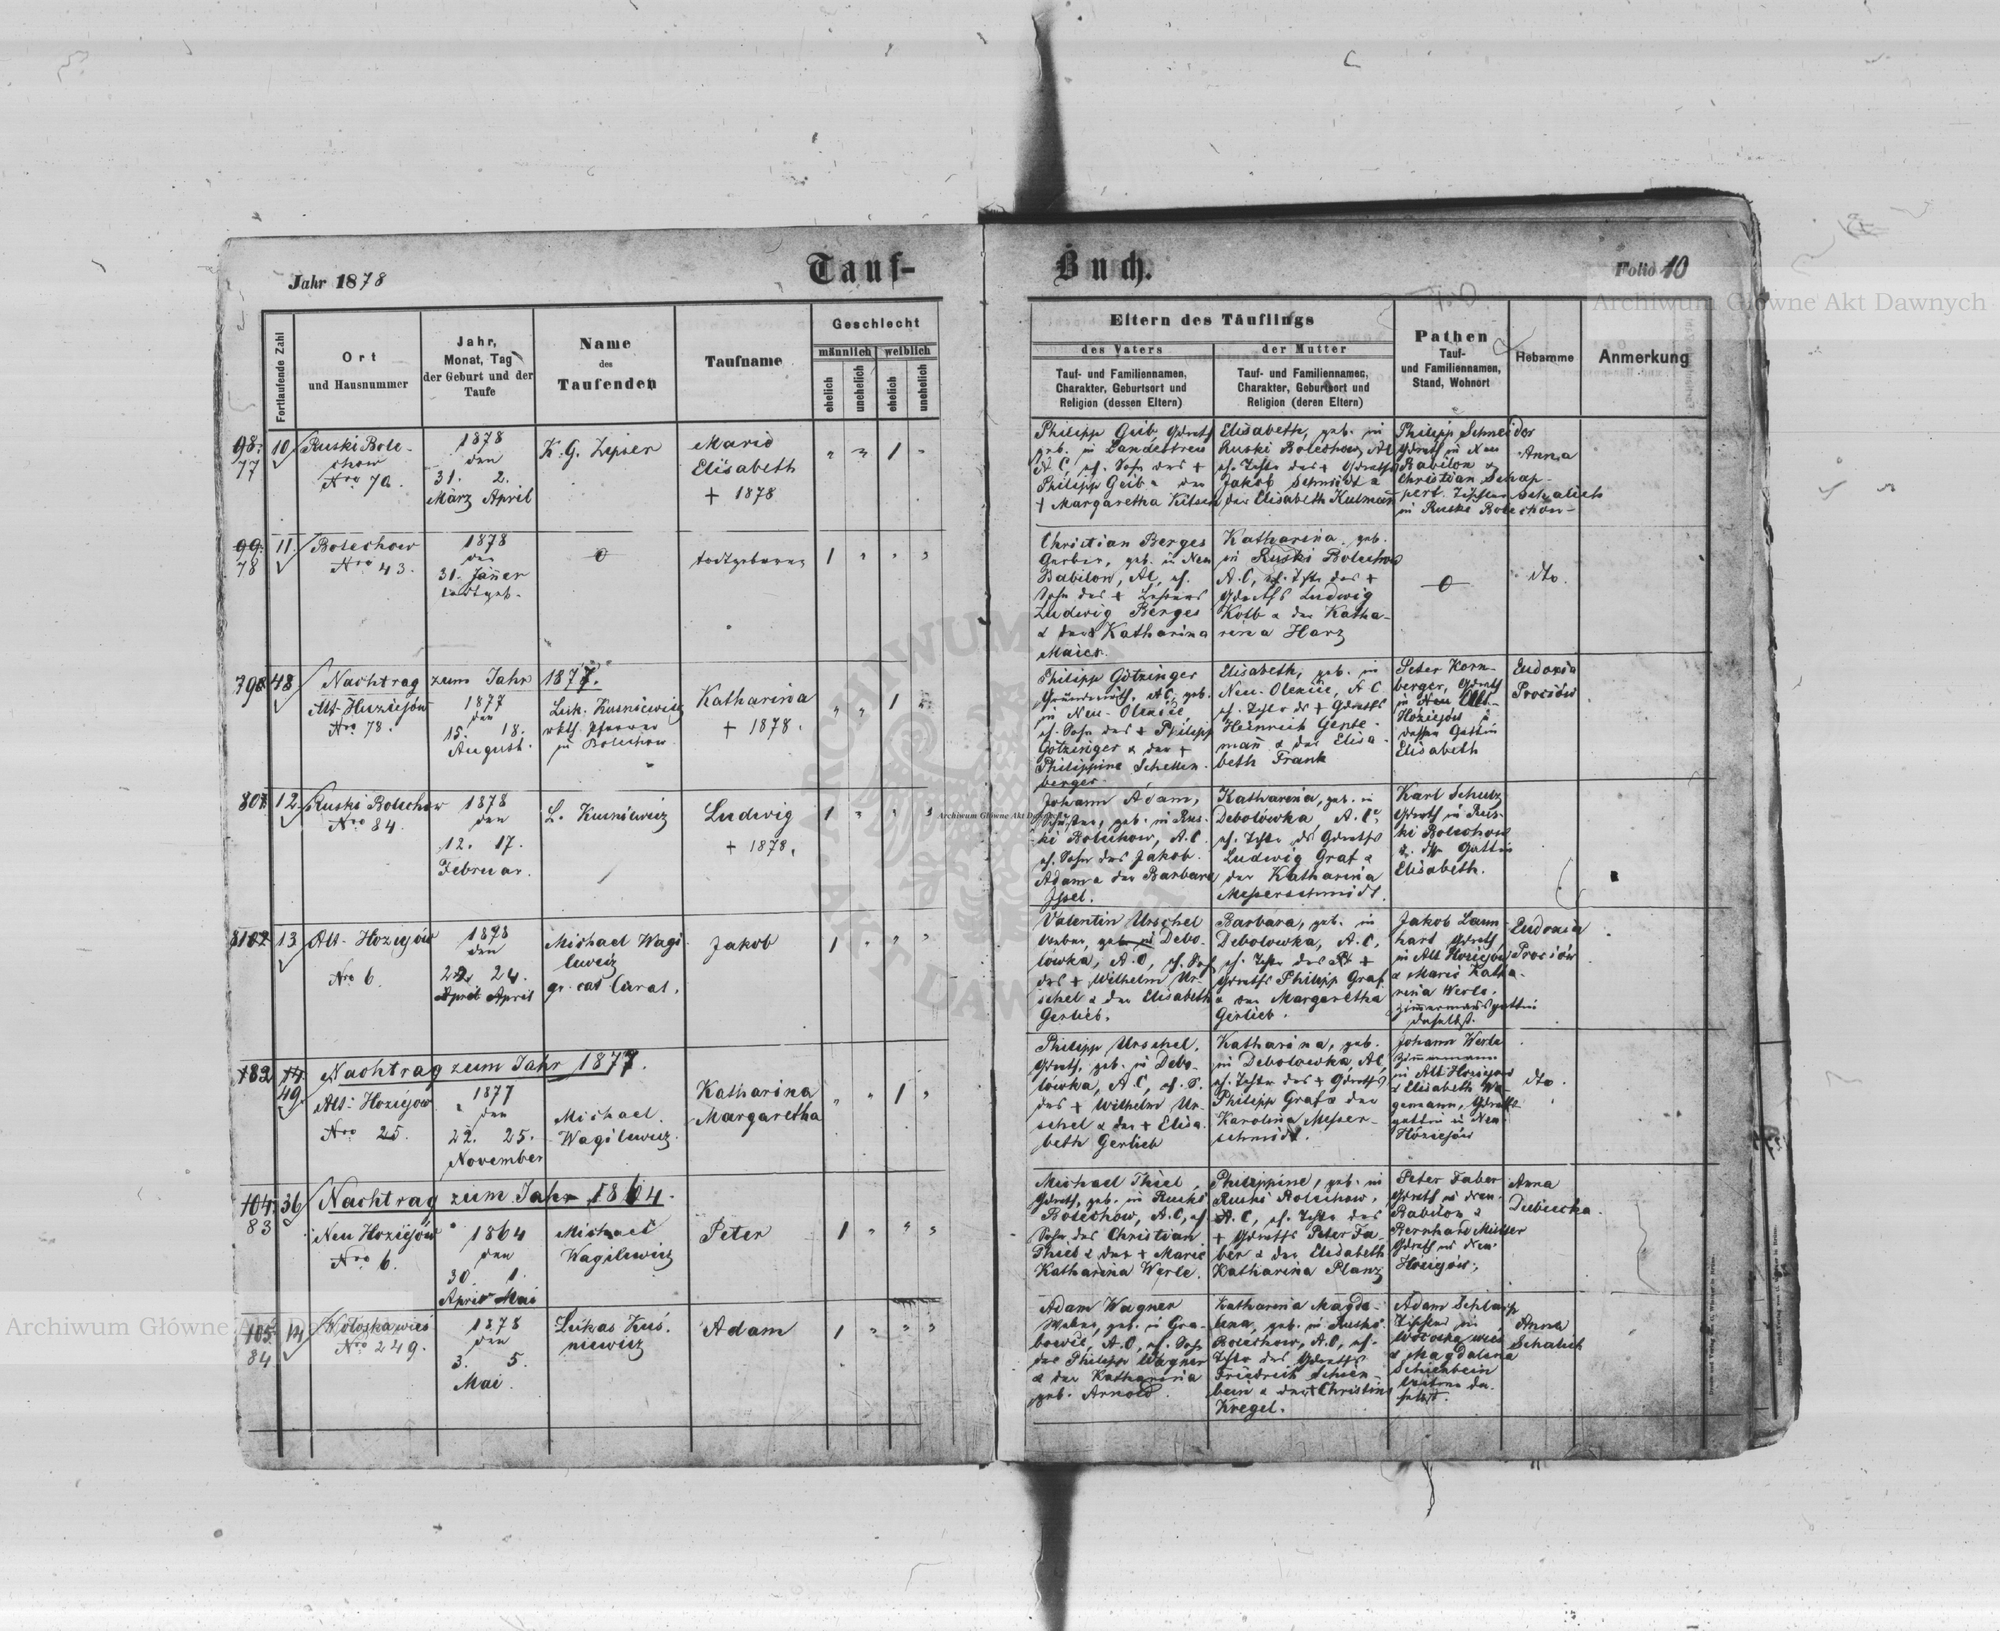 Jahr 1878
Tauf-
Buch.
Folio 10
Archiwum Główne Akt Dawnych
Fortlaufende Zahl
Ort
und Hausnummer
Jahr,
Monat, Tag
der Geburt und der
Taufe
Name
des
Taufenden
Taufname
Geschlecht
männlich
weiblich
ehelich
unehelich
ehelich
unehelich
Eltern des Täuflings
des Vaters
Tauf- und Familiennamen,
Charakter, Geburtsort und
Religion (dessen Eltern)
der Mutter
Tauf- und Familiennamen,
Charakter, Geburtsort und
Religion (deren Eltern)
Pathen
Tauf-
und Familiennamen,
Stand, Wohnort
Hebamme
Anmerkung
98.
77
10
Ruski Bole-
chow
Nro 70.
1878
den
31. 2.
März April
K. G. Zipser
Marie
Elisabeth
+ 1878
1
Philipp Geib Gdrth
geb. in Landestreu
A C, eh. Sohn des +
Philipp Geib & der
+ Margaretha
Elisabeth, geb. in
Ruski Bolechow, A C
eh. Tchtr des + Gdrths
Jakob Schmidt &
der Elisabeth Kulman
Philipp Schneider
Gdrth in Neu
Babilon &
Christian Schap-
pert
in Ruski Bolechow
Anna
Schalich
99.
78
11.
Bolechow
Nro 43.
1878
den
31. Jäner
todtgeb.
0
todtgeboren
1
Christian Berges
Gerber, geb. in Neu
Babilon, AC, eh.
Sohn des + Lehrers
Ludwig Berges
& der Katharina
Maier.
Katharina, geb.
in Ruski Bolechow
A.C, eh. Tchtr des +
Gdrths Ludwig
Kolb & der Katha-
rina Harz
0
dto.
79
48
Nachtrag zum Jahr 1877.
Alt-Hoziejów
Nro 78.
1877
den
15. 18.
August.
Luk. Kusniewicz
rktl. Pfarrer
in Bolechow
Katharina
+ 1878.
1
Philipp Götzinger
Grundwirth, AC, geb.
in Neu-Olexice
eh. Sohn des + Philipp
Götzinger & der +
Philippine Schellen-
berger.
Elisabeth, geb. in
Neu-Olexice, A C
eh. Tchtr ds + Gdrths
Heinrich
mañ & der Elisa-
beth Frank
Peter Korn-
berger, Gdrth
in Alt-
Hoziejów &
dessen Gattin
Elisabeth
Eudoxia
Prociów
80
12.
Ruski Bolechow
Nro 84.
1878
den
12. 17.
Februar.
L. Kusniewicz
Ludwig
+ 1878.
1
Johann Adam,
Schuster, geb. in Rus-
ki Bolechow, A.C.
eh. Sohn des Jakob
Adam & der Barbara
Issel.
Katharina, geb. in
Debolówka, A.C.
eh. Tchtr des Gdrths
Ludwig Graf &
der Katharina
Messerschmidt.
Karl Schutz
Gdrth in Rus-
ki Bolechow
& dssn Gattin
Elisabeth.
81
13
Alt-Hoziejów
Nro 6.
1878
den
22 24.
April April
Michael Wagi-
lewicz
gr. cat Curat.
Jakob
1
Valentin Urschel
Weber, geb. in Debo-
lówka, A.C, eh. Sohn
des + Wilhelm Ur-
schel & der Elisabeth
Gerlieb.
Barbara, geb. in
Debolowka, A.C,
eh. Tchtr des +
Gdrths Philipp Graf
& der Margaretha
Gerlieb.
Jakob Laun-
hart, Gdrth,
in Alt Hoziejów
& Marie Katha-
rina Werle,
Zimermansgattin
daselbst.
Eudoxia
Prociów
82
49.
Nachtrag zum Jahr 1877.
Alt-Hoziejow
Nro 25.
1877
den
22. 25.
November
Michael
Wagilewicz.
Katharina
Margaretha
1
Philipp Urschel,
Gdrth, geb. in Debo-
lówka, A.C, eh. S.
des + Wilhelm Ur-
schel & der + Elisa-
beth Gerlieb
Katharina, geb.
in Debolowka, AC,
eh. Tchtr des + Gdrths
Philipp Graf & der
Karolina Messer-
schmidt.
Johann Werle
Zimmermann
in Alt Hoziejow
& Elisabeth Wa-
gemann, Gdrths-
gattin in Neu-
Hoziejów
dto.
104.
83
36
Nachtrag zum Jahr 1864.
Neu Hoziejów
Nro 6.
1864
den
30. 1.
April Mai
Michael
Wagilewicz
Peter
1
Michael Thiel,
Gdrth, geb. in Ruski
Bolechow, A.C, eh
Sohn des Christian
Thiel & der + Marie
Katharina Werle.
Philippine, geb. in
Ruski Bolechow,
A.C, eh. Tchtr des
+ Gdrths Peter Fa-
ber & der Elisabeth
Katharina Planz
Peter Faber
Gdrth in Neu-
Babilon &
Bernhard Müller
Gdrth in Neu-
Hoziejów.
Anna
Dubiecka.
105.
84
14
Woloskawies
Nro 249.
1878
den
3. 5.
Mai.
Lukas Kuś-
niewicz
Adam
1
Adam Wagner
Weber, geb. in Gra-
bowce, A.C, eh. Sohn
des Philipp Wagner
& der Katharina
geb. Arnold.
Katharina Magda-
lena, geb. in Ruski
Bolechow, A.C, eh.
Tchtr des Gdrths
Friedrich Schien-
bein & der + Christine
Kregel.
Adam Schlamp
in
Woloska wies
& Magdalena
Schienbein
da-
selbst.
Anna
Schalich
Archiwum Główne Akt Dawnych
Archiwum Główne Akt Dawnych